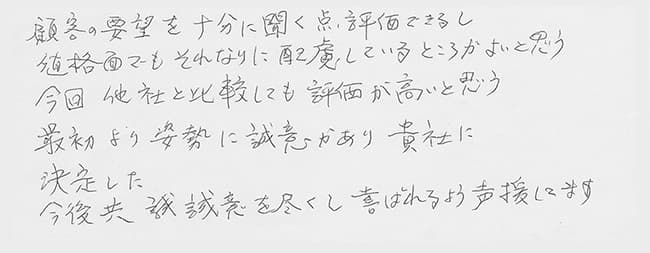 顧客の要望を十分に聞く点、評価できるし
値格面でもそれなりに配慮しているところがよいと思う
今回他社と比較しても評価が高いと思う
最初より姿勢に誠意があり貴社に
決定した
今後共誠誠意を尽くし喜ばれるよう声援してます